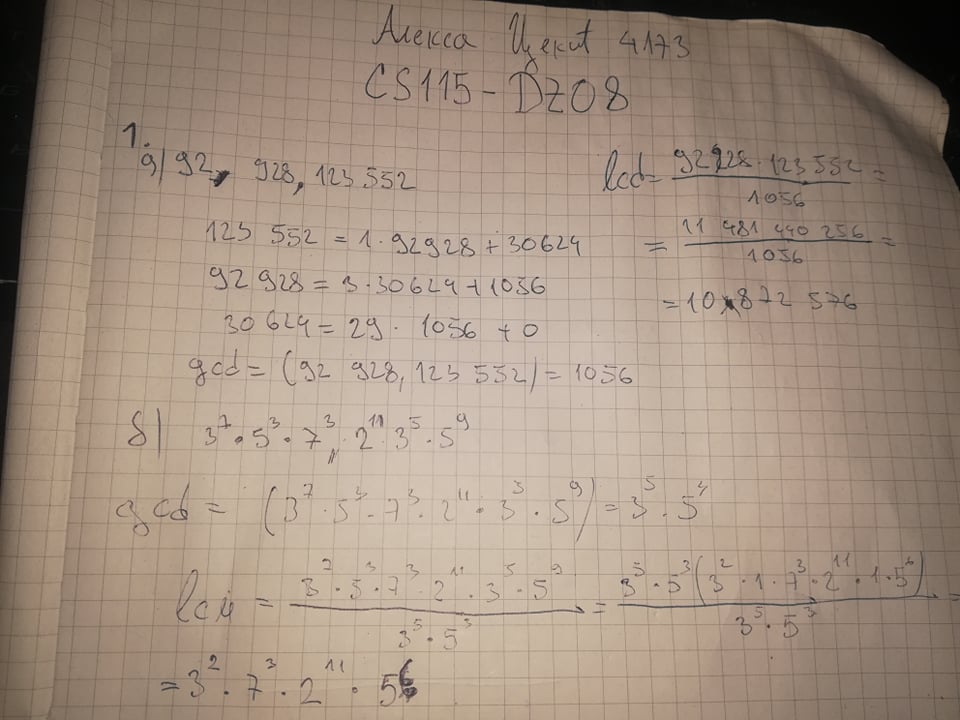 Алекса Цекић 4173
CS115-DZ08
1.
а) 92, 928, 123 552
123 552 = 1·92928 + 30624
92 928 = 3·30624 + 1056
30 624 = 29· 1056 + 0
gcd = (92 928, 123 552) = 1056
lcd = 92928·123 552 / 1056 =
= 11 481 440 256 / 1056 =
= 10 872 576
б) 3^7·5^3·7^3, 2^11·3^5·5^9
gcd = (3^7·5^3·7^3·2^11·3^5·5^9) = 3^5·5^3
lcm = 3^7·5^3·7^3·2^11·3^5·5^9 / 3^5·5^3 = 3^5·5^3(3^2·1·7^3·2^11·1·5^6) / 3^5·5^3 =
= 3^2·7^3·2^11·5^6